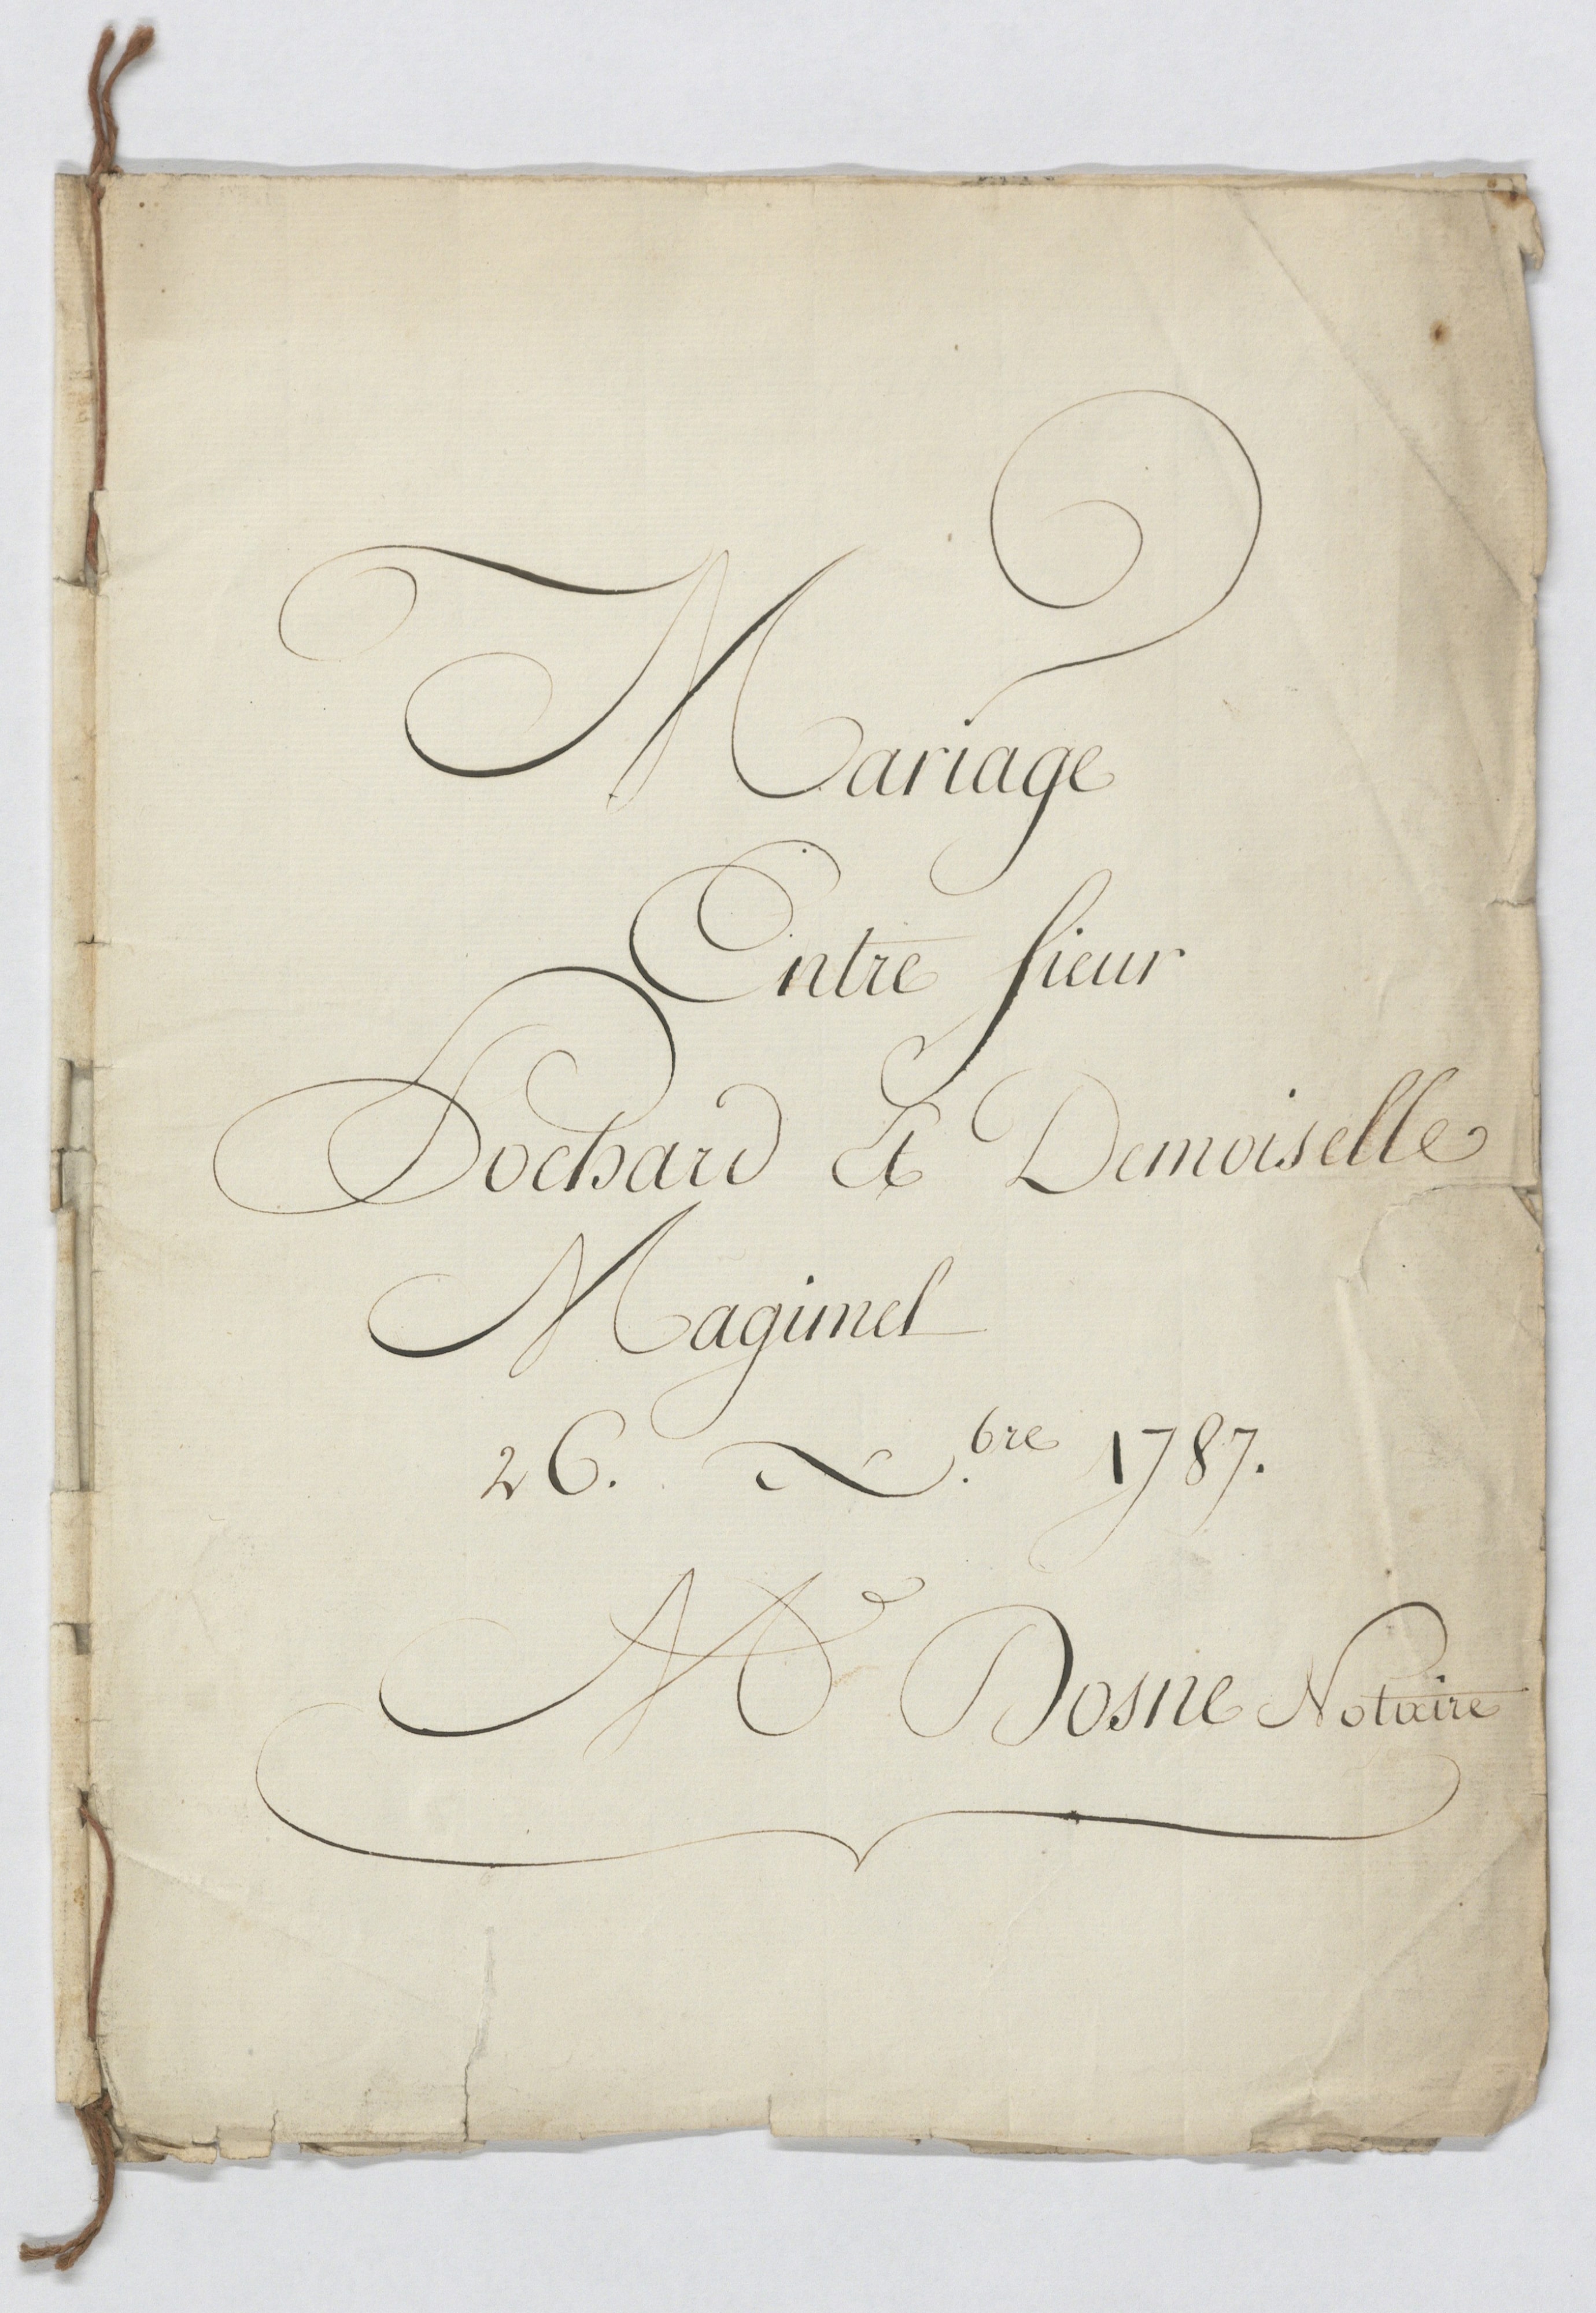 Mariage
Entre sieur
Et Demoiselle
Magimel
26. 1787.
Me Dosne Notaire